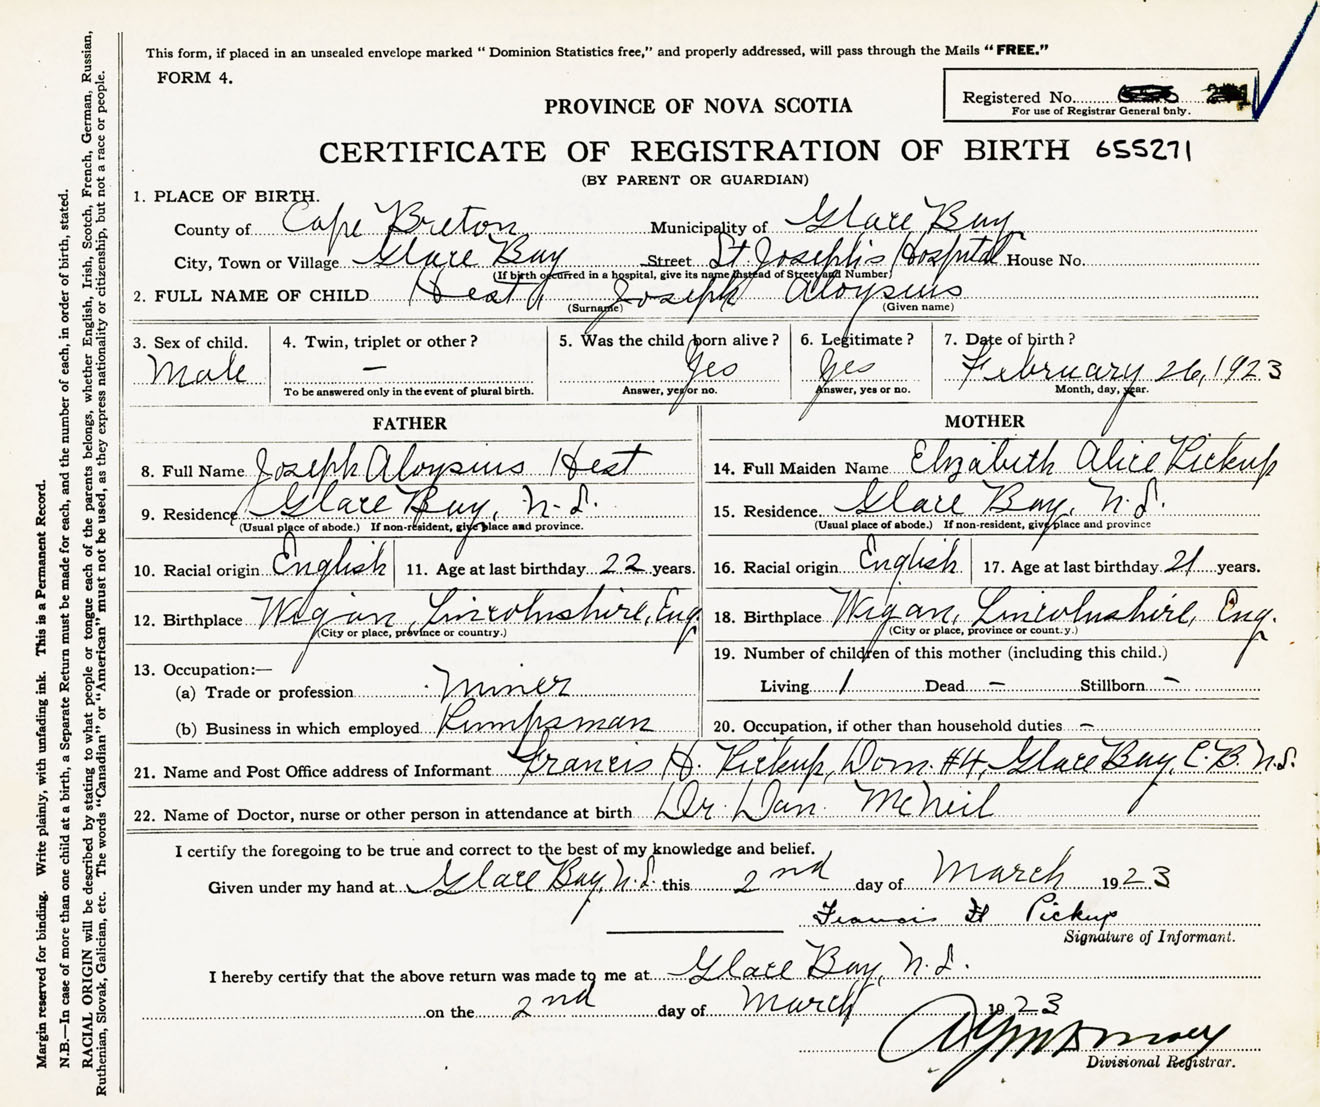 This form, if placed in an unsealed envelope marked " Dominion Statistics free," and properly addressed, will pass through the Mails "FREE."
FORM 4.
Registered No.
For use of Registrar General only.
PROVINCE OF NOVA SCOTIA
CERTIFICATE OF REGISTRATION OF BIRTH 655271
(BY PARENT OR GUARDIAN)
1. PLACE OF BIRTH.
County of Cape Breton Municipality of Glace Bay
City, Town or Village Glace Bay Street St. Joseph's Hospital House No.
(If birth occurred in a hospital, give its name instead of Street and Number)
2. FULL NAME OF CHILD Hest, Joseph Aloysius
(Surname) (Given name)
3. Sex of child. 4. Twin, triplet or other? 5. Was the child born alive? 6. Legitimate? 7. Date of birth?
Male — Yes Yes February 26, 1923
To be answered only in the event of plural birth. Answer, yes or no. Answer, yes or no. Month, day, year.
FATHER MOTHER
8. Full Name Joseph Aloysius Hest 14. Full Maiden Name Elizabeth Alice Pickup
9. Residence Glace Bay, N.S. 15. Residence. Glace Bay, N.S.
(Usual place of abode.) If non-resident, give place and province. (Usual place of abode.) If non-resident, give place and province
10. Racial origin English 11. Age at last birthday 22 years. 16. Racial origin English 17. Age at last birthday 21 years.
12. Birthplace Wigan, Lincolnshire, Eng. 18. Birthplace Wigan, Lincolnshire, Eng.
(City or place, province or country.) (City or place, province or country.)
13. Occupation:— 19. Number of children of this mother (including this child.)
(a) Trade or profession Miner Living 1 Dead — Stillborn —
(b) Business in which employed Pumpsman 20. Occupation, if other than household duties —
21. Name and Post Office address of Informant Francis H. Pickup, Dom. #4, Glace Bay, C.B. N.S.
22. Name of Doctor, nurse or other person in attendance at birth Dr. Dan McNeil
I certify the foregoing to be true and correct to the best of my knowledge and belief.
Given under my hand at Glace Bay, N.S. this 2nd day of March 1923
Francis H Pickup
Signature of Informant.
I hereby certify that the above return was made to me at Glace Bay, N.S.
on the 2nd day of March 1923
Divisional Registrar.
Margin reserved for binding. Write plainly, with unfading ink. This is a Permanent Record.
N.B.—In case of more than one child at a birth, a Separate Return must be made for each, and the number of each, in order of birth, stated.
RACIAL ORIGIN will be described by stating to what people or tongue each of the parents belongs, whether English, Irish, Scotch, French, German, Russian,
Ruthenian, Slovak, Galician, etc. The words "Canadian" or "American" must not be used, as they express nationality or citizenship, but not a race or people.